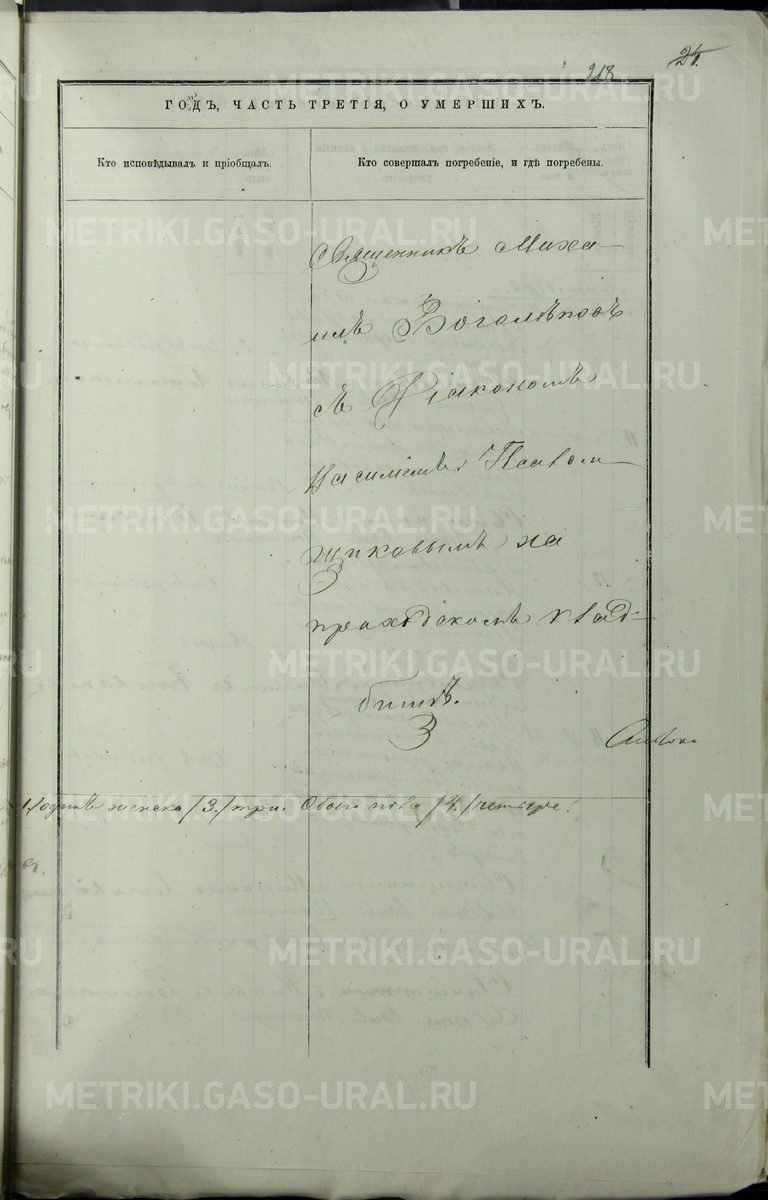 218
24.
ГОДЪ, ЧАСТЬ ТРЕТІЯ, О УМЕРШИХЪ.
Кто исповѣдывалъ и пріобщалъ.
Кто совершалъ погребеніе, и гдѣ погребены.
Священникъ Миха–
илъ Боголѣповъ
съ Діакономъ
щиковымъ на
приходскомъ клад–
бищѣ.
1/ одинъ женска /3/ три. Обоего пола /4/ четыре.
METRIKI.GASO-URAL.RU